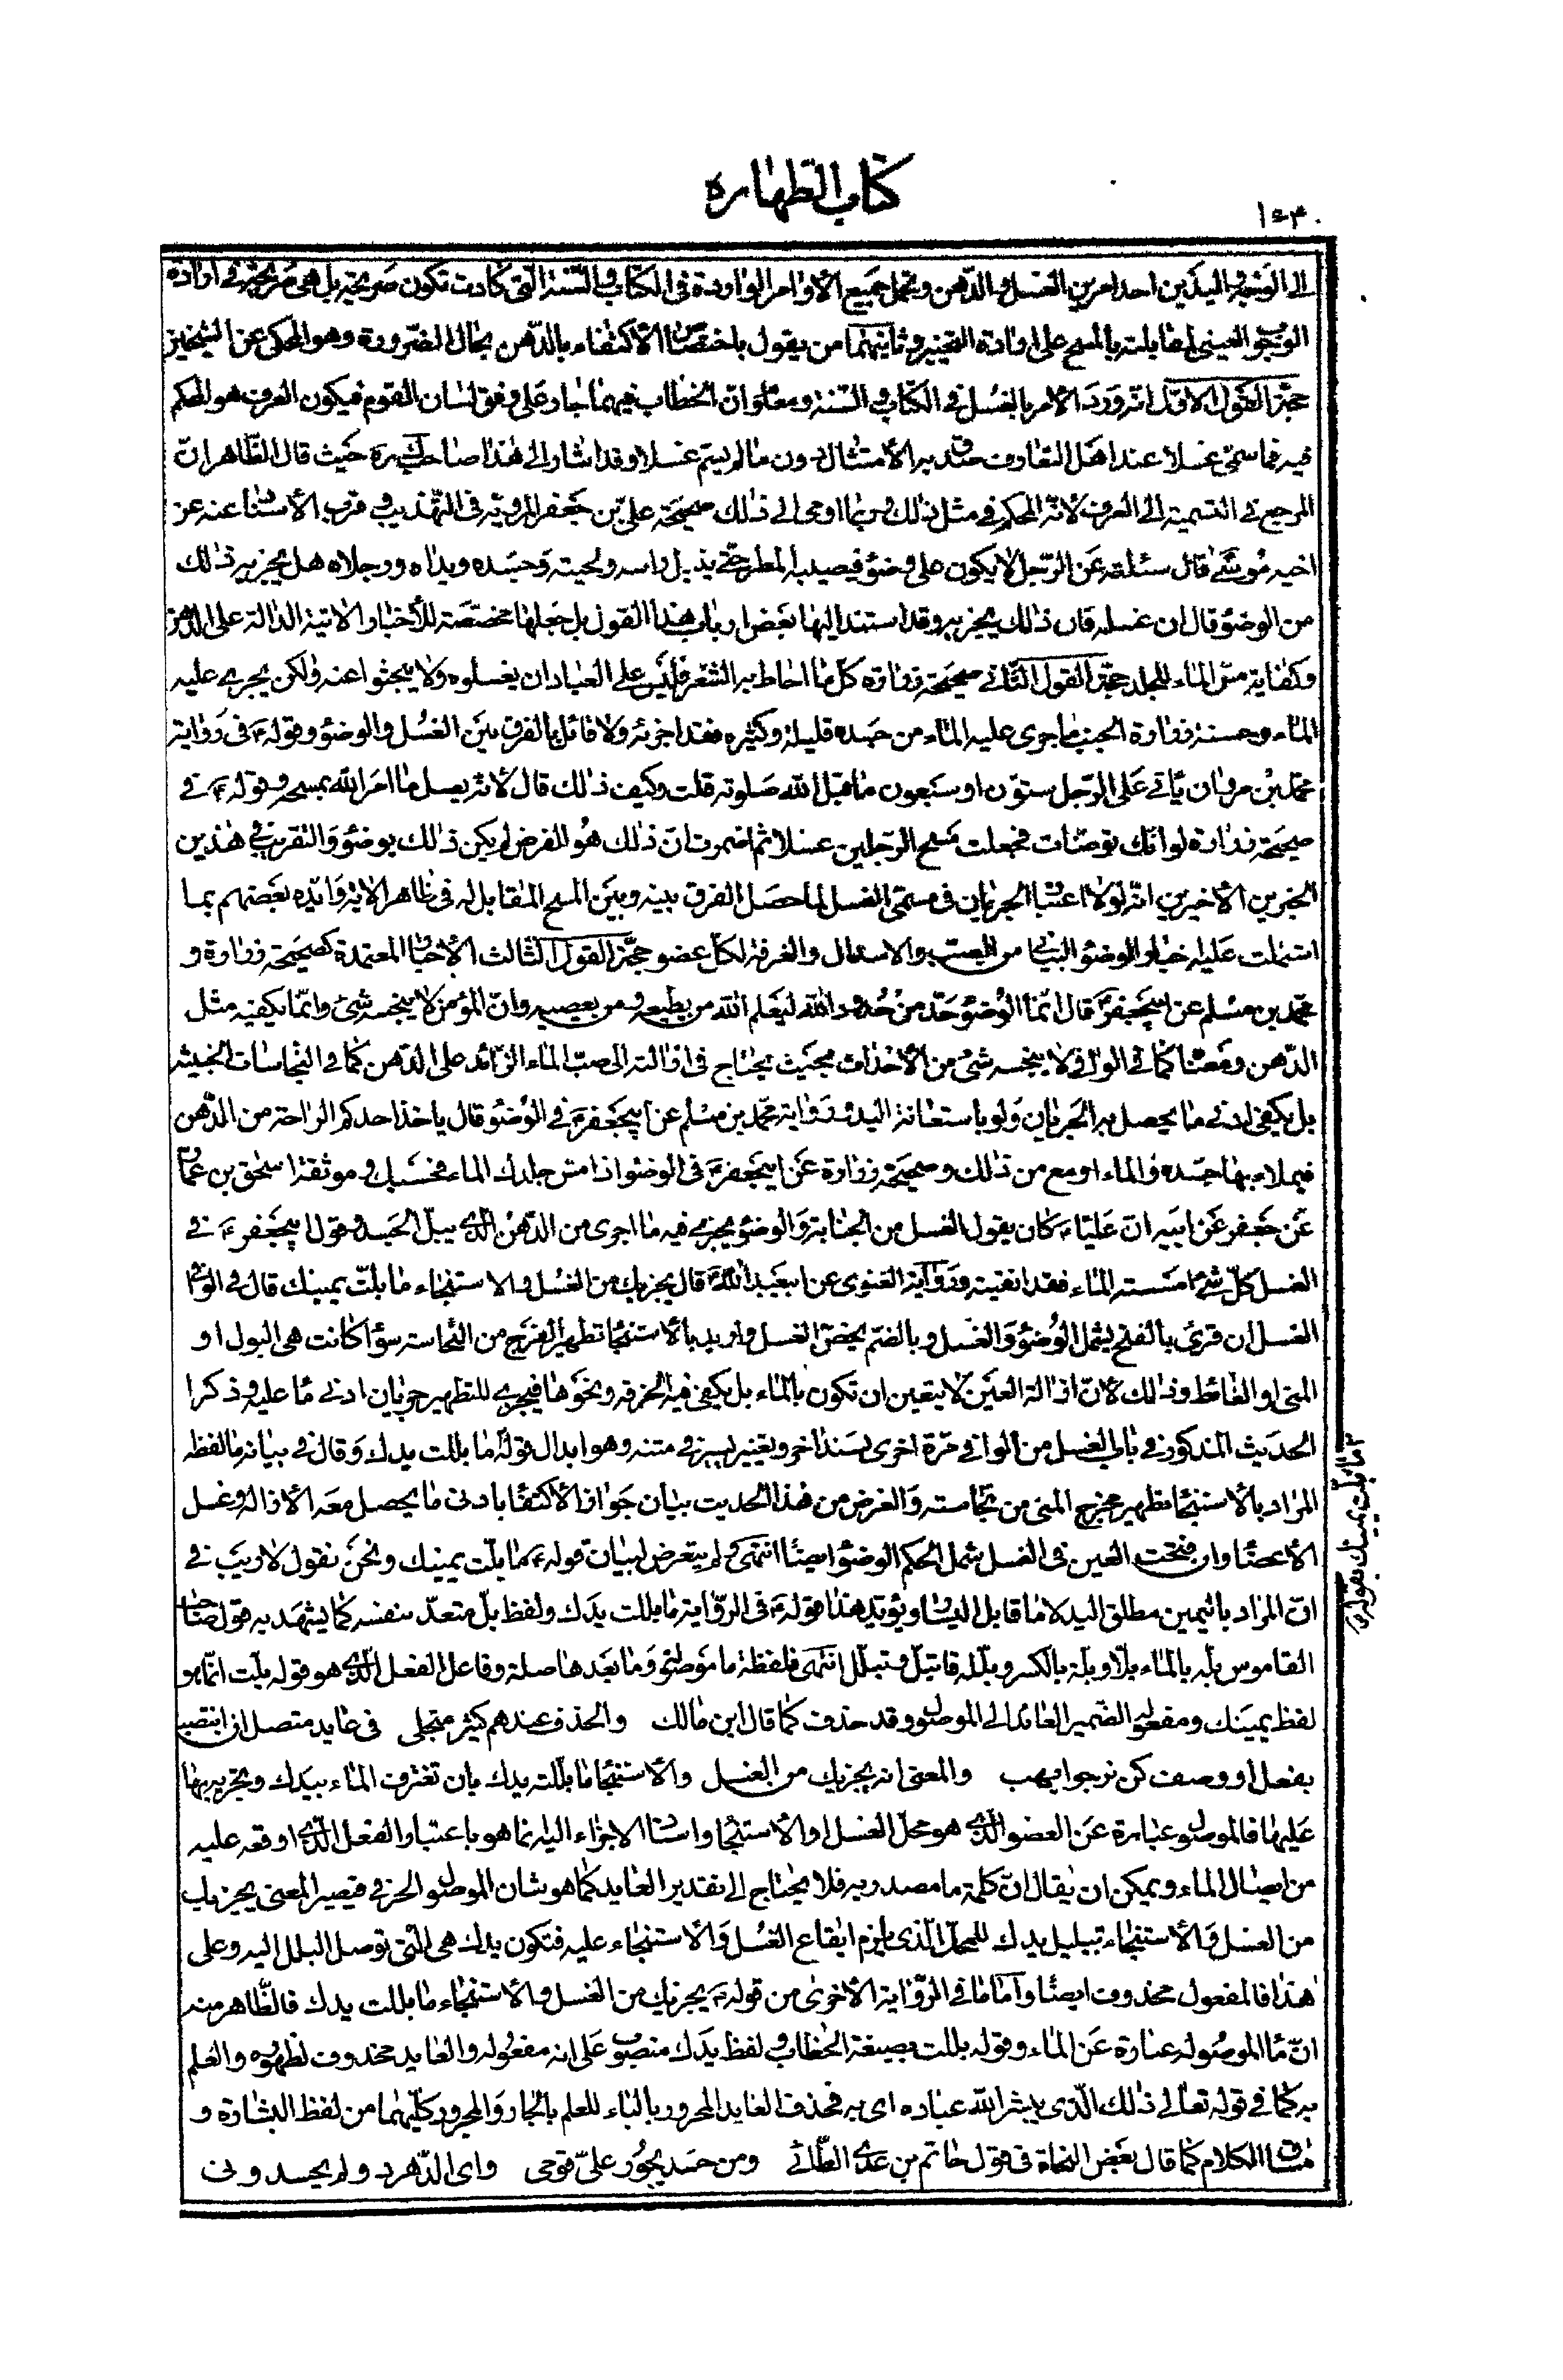 كتاب الطهارة
الى الوجه واليدين احد امرين الغسل والدهن وتحمل جميع الأوامر الواردة فى الكتاب والسنة التى كادت تكون صريحة بل هى صريحة فى ارادة
الوجوب العينى لمقابلته بالمسح على ارادة التخيير وثانيهما من يقول باختصاص الأكتفاء بالدهن بحال الضرورة وهو المحكى عن الشيخين
حجة القول الاول انه ورد الأمر بالغسل فى الكتاب والسنة ومعلوم ان الخطاب فيهما جار على وفق لسان القوم فيكون العرف هو المحكم
فيه فما سمى غسلا عند اهل التعارف صدق به الأمتثال دون ما لم يسم غسلا وقد اشار الى هذا صاحب ك ره حيث قال الظاهر ان
المرجع فى التسمية الى العرف لانه المحكم فى مثل ذلك وربما اومى الى ذلك صحيحة على بن جعفر المروية فى التهذيب وقرب الأسناد عنه عن
اخيه موسى قال سئلته عن الرجل لا يكون على وضوء فيصيبه المطر حتى يبتل راسه ولحيته وجسده ويداه ورجلاه هل يجزيه ذلك
من الوضوء قال ان غسله فان ذلك يجزيه وقد استند اليها بعض ارباب هذا القول بل جعلها مخصصة للأخبار الاتية الدالة على الدهن
وكفاية مس الماء للجلد حجة القول الثانى صحيحة زرارة كل ما احاط به الشعر فليس على العباد ان يغسلوه ولا يبحثوا عنه ولكن يجرى عليه
الماء وحسنة زرارة الجنب ما جرى عليه الماء من جسده قليله وكثيره فقد اجزئه ولا قائل بالفرق بين الغسل والوضوء وقوله ع فى رواية
محمد بن مروان ياتى على الرجل ستون او سبعون ما قبل الله صلوته قلت وكيف ذلك قال لأنه يغسل ما امر الله بمسحه وقوله ع فى
صحيحة زرارة لو انك توضات فجعلت مسح الرجلين غسلا ثم اضمرت ان ذلك هو الفرض لم يكن ذلك بوضوء والتقريب فى هذين
الخبرين الأخيرين انه لولا اعتبار الجريان فى مسمى الغسل لما حصل الفرق بينه وبين المسح المقابل له فى ظاهر الاية وايده بعضهم بما
اشتملت عليه اخبار الوضوء البيانى من الصب والاسدال والغرفة لكل عضو حجة القول الثالث الأخبار المعتمدة كصحيحة زرارة و
محمد بن مسلم عن ابيجعفر ع قال انما الوضوء حد من حدود الله ليعلم الله من يطيعه ومن يعصيه وان المؤمن لا ينجسه شئ وانما يكفيه مثل
الدهن ومعناه كما فى الوافى لا ينجسه شئ من الأحداث بحيث يحتاج فى ازالته الى صب الماء الزائد على الدهن كما فى النجاسات الخبيثة
بل يكفى ادنى ما يحصل به الجريان ولو باستعانة اليد ورواية محمد بن مسلم عن ابيجعفر ع فى الوضوء قال ياخذ احدكم الراحة من الدهن
فيملاء بها جسده والماء اوسع من ذلك وصحيحة زرارة عن ابيجعفر ع فى الوضوء اذا مس جلدك الماء فحسبك وموثقة اسحق بن عمار
عن جعفر عن ابيه ان عليا ع كان يقول الغسل من الجنابة والوضوء يجزى فيه ما اجرى من الدهن الذى يبل الجسد وقول ابيجعفر ع فى
الغسل كل شئ امسسته الماء فقد انقيته ورواية الغنوى عن ابيعبد الله ع قال يجزيك من الغسل والاستنجاء ما بلت يمينك قال فى الوافى
الغسل ان قرئ بالفتح يشمل الوضوء والغسل وبالضم يخص الغسل واريد بالأستنجاء تطهير الفرج من النجاسة سواء كانت هى البول او
المنى او الغائط وذلك لأن ازالة العين لا يتعين ان تكون بالماء بل يكفى فيه الخرقة ونحوها فيجرى للتطهير جريان ادنى ماء عليه وذكر
الحديث المذكور فى باب الغسل من الوافى مرة اخرى بسند اخر وتغيير يسير فى متنه وهو ابدال قوله ما بللت يدك وقال فى بيانه ما لفظه
المراد بالأستنجاء تطهير مخرج المنى من نجاسته والغرض من هذا الحديث بيان جواز الأكتفاء بادنى ما يحصل معه الازالة وغسل
الأعضاء وان فتحت العين فى الغسل شمل الحكم الوضوء ايضا انتهى ولم يتعرض لبيان قوله ع ما بلت يمينك ونحن نقول لا ريب فى
ان المراد باليمين مطلق اليد لا ما قابل اليسار ويؤيد هذا قوله ع فى الرواية ما بللت يدك ولفظ بل متعد بنفسه كما يشهد به قول صاحب
القاموس بله بالماء بلا وبلة بالكسر وبلله فابتل وتبلل انتهى فلفظة ما موصولة وما بعدها صلة وفاعل الفعل الذى هو قوله بلت انما هو
لفظ يمينك ومفعوله الضمير العائد الى الموصول وقد حذف كما قال ابن مالك والحذف عندهم كثير منجلى فى عايد متصل ان انتصب
بفعل او وصف كمن نرجو يهب والمعنى انه يجزيك من الغسل والأستنجاء ما بللت يدك بان تغترف الماء بيدك وتجريه بها
عليها فالموصول عبارة عن العضو الذى هو محل الغسل او الأستنجاء واسناد الاجزاء اليه انما هو باعتبار الفعل الذى اوقعه عليه
من ايصال الماء ويمكن ان يقال ان كلمة ما مصدرية فلا يحتاج الى تقدير العايد كما هو شان الموصول الحرفى فيصير المعنى يجزيك
من الغسل والأستنجاء تبليل يدك للمحل الذى يلزم ايقاع الغسل والأستنجاء عليه فتكون يدك هى التى توصل البلل اليه وعلى
هذا فالمفعول محذوف ايضا واما ما فى الرواية الأخرى من قوله ع يجزيك من الغسل والأستنجاء ما بللت يدك فالظاهر منه
ان ما الموصولة عبارة عن الماء وقوله بللت بصيغة الخطاب ولفظ يدك منصوب على انه مفعوله والعايد محذوف لظهوره والعلم
به كما فى قوله تعالى ذلك الذى يبشر الله عباده اى به فحذف العايد المجرور بالباء للعلم بالجار والمجرور كليهما من لفظ البشارة و
مساق الكلام كما قال بعض النحاة فى قول حاتم بن عدى الطائى ومن حسد يجور على قومى واى الدهر ذو لم يحسدونى